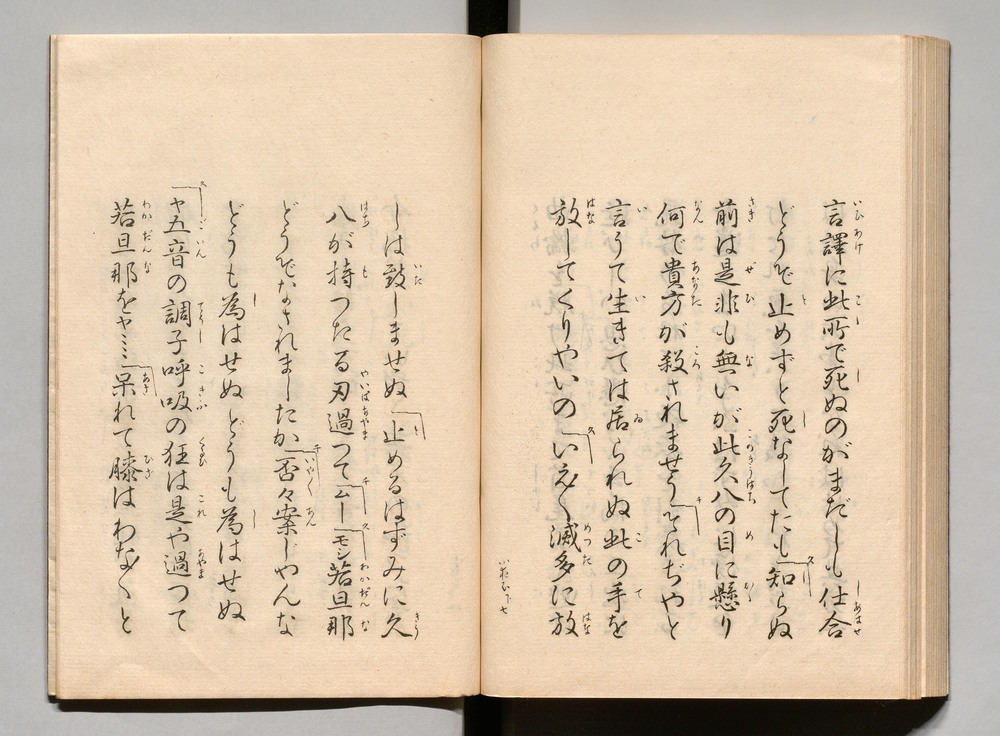 言譯に此所で死ぬのがまだしも仕合
どうで止めずと死なしてたも知らぬ
前は是非も無いが此久八の目に懸り
何で貴方が殺されませうそれぢやと
言うて生きては居られぬ此の手を
放してくりやいのいえ〱滅多に放
しは致しませぬ止めるはずみに久
八が持つたる刃過つてムーモシ若旦那
どうでなされましたか否々案じやんな
どうも為はせぬどうも為はせぬ
ヤ五音の調子呼吸の狂は是や過つて
若旦那をヤミミ呆れて膝はわな〱と